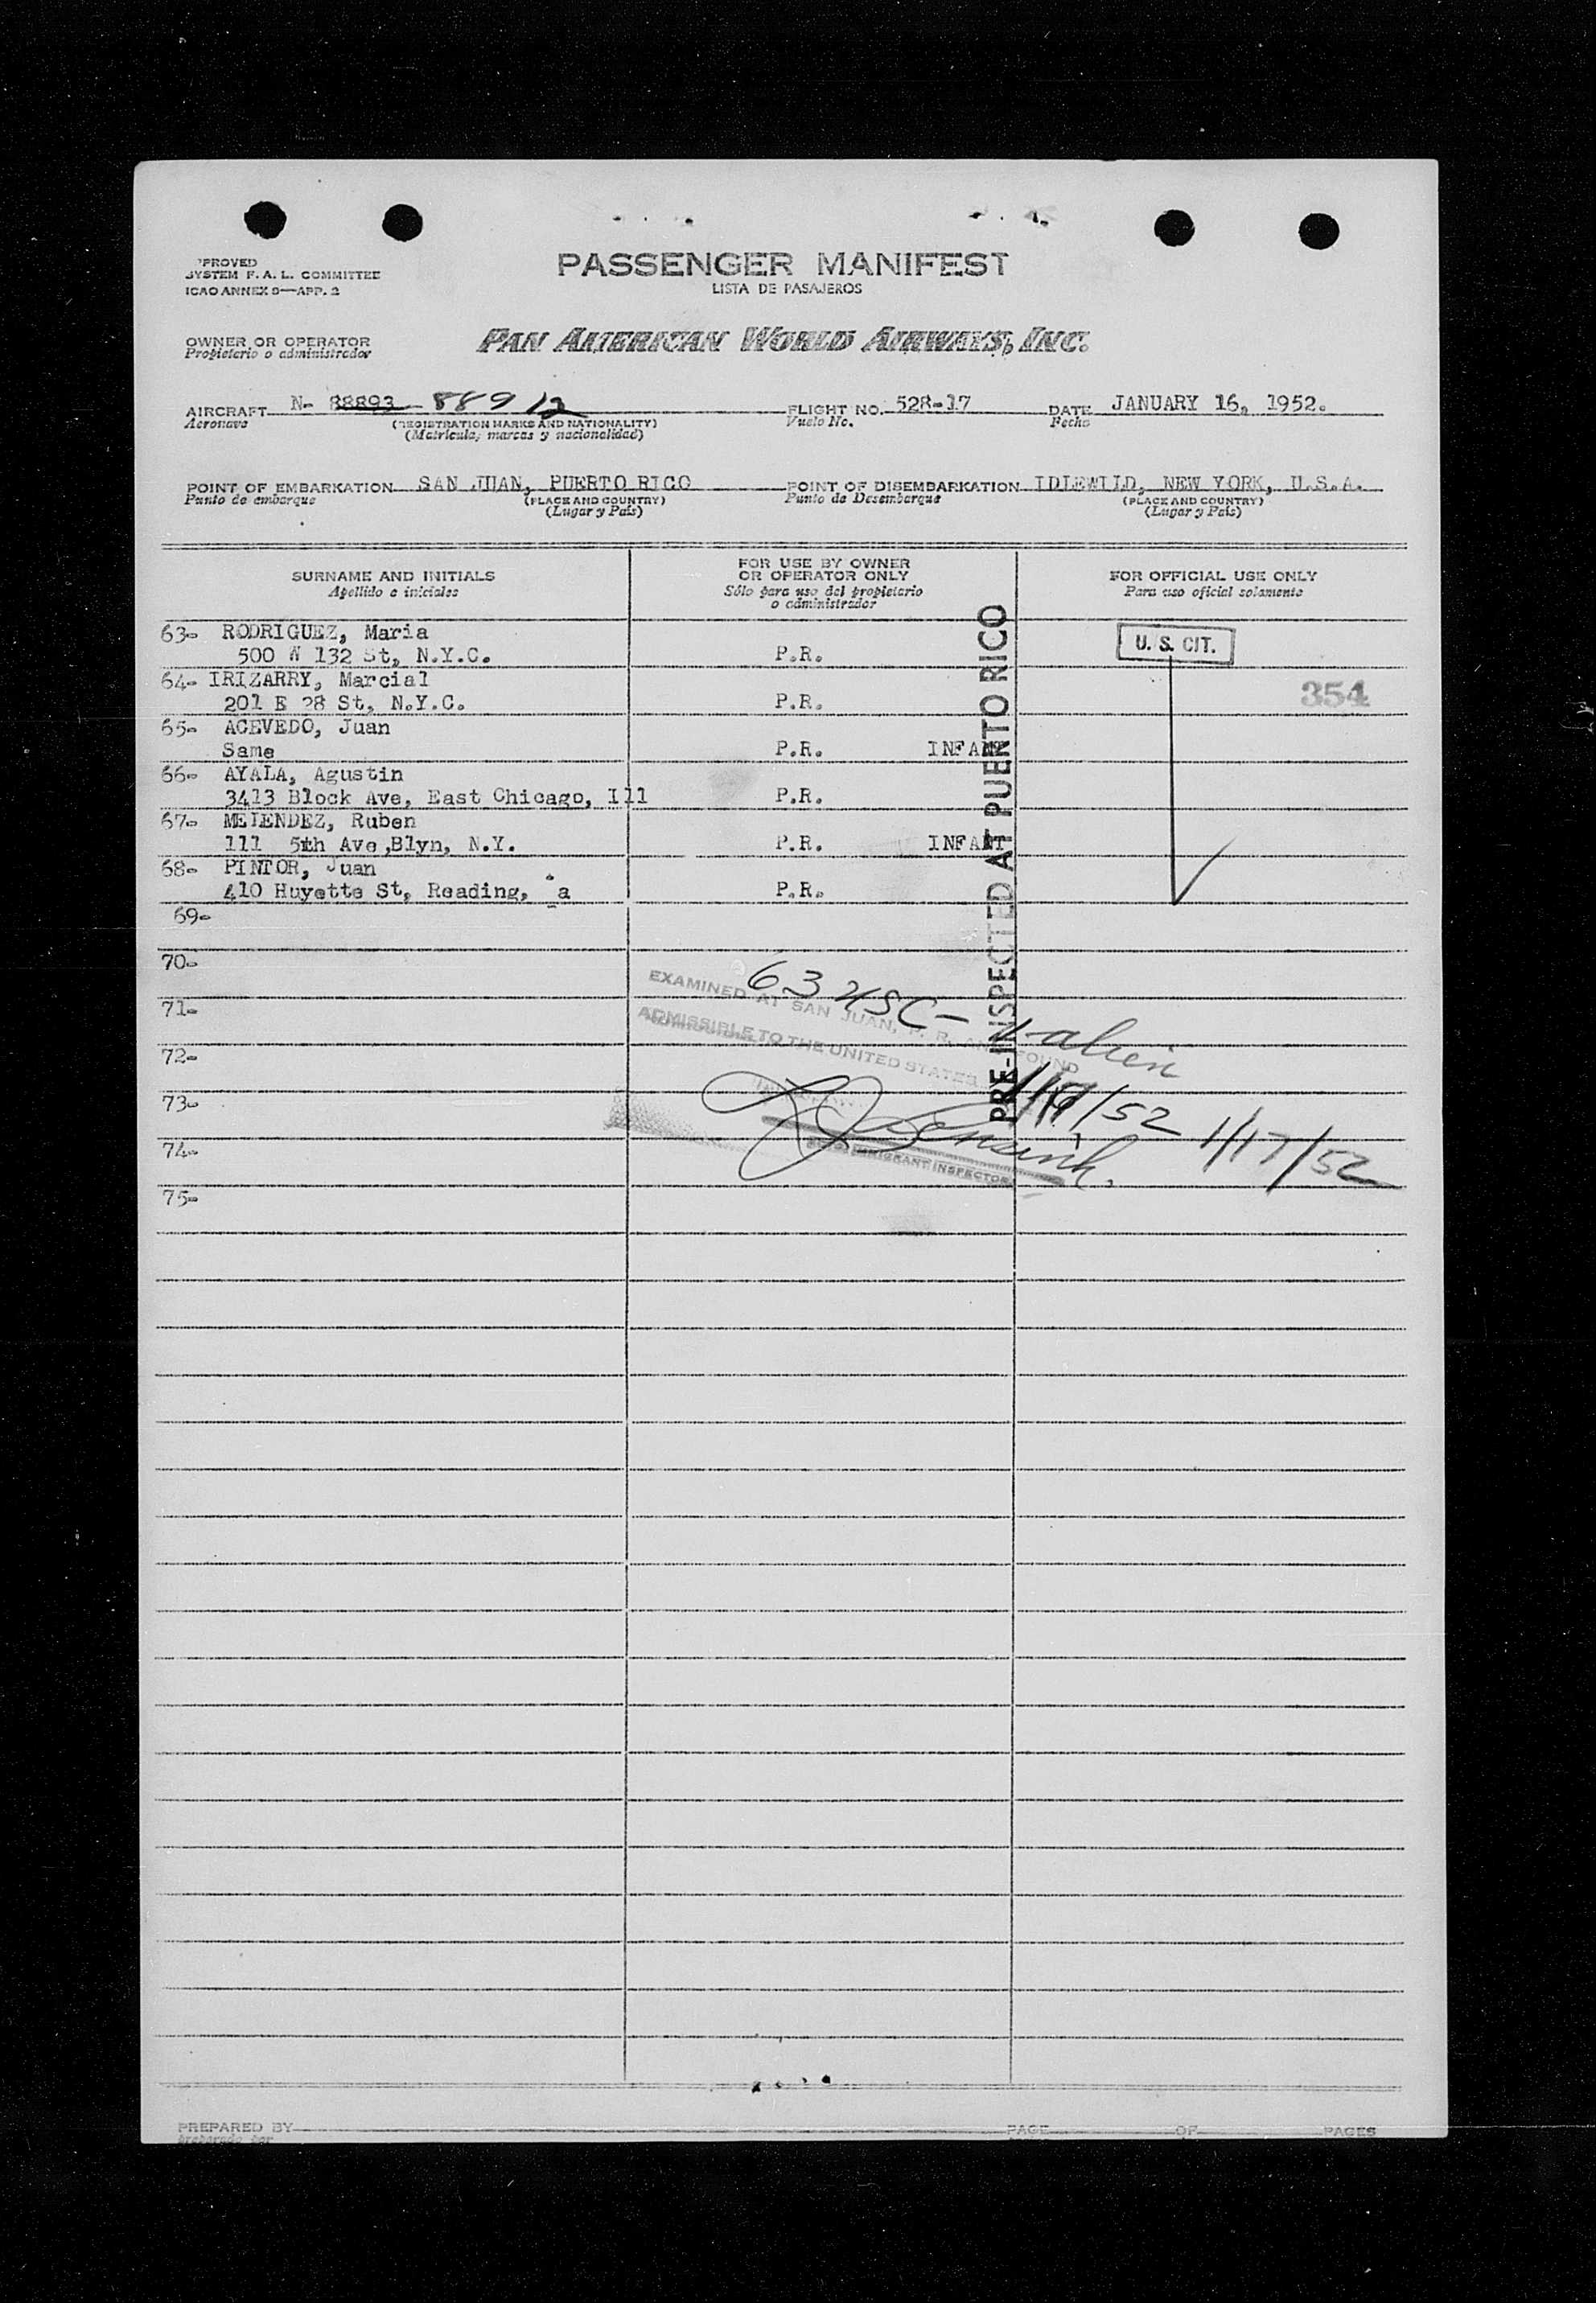 PROVED
SYSTEM F. A. L. COMMITTEE
ICAO ANNEX 9—APP. 2
PASSENGER MANIFEST
LISTA DE PASAJEROS
OWNER OR OPERATOR
Propietario o administrador
PAN AMERICAN WORLD AIRWAYS, INC.
AIRCRAFT N- 88893 88912
Aeronave
(REGISTRATION MARKS AND NATIONALITY)
(Matrícula, marcas y nacionalidad)
FLIGHT NO. 528-17
Vuelo No.
DATE JANUARY 16, 1952.
Fecha
POINT OF EMBARKATION SAN JUAN, PUERTO RICO
Punto de embarque
(PLACE AND COUNTRY)
(Lugar y País)
POINT OF DISEMBARKATION IDLEWILD, NEW YORK, U.S.A.
Punto de Desembarque
(PLACE AND COUNTRY)
(Lugar y País)
SURNAME AND INITIALS
Apellido e iniciales
FOR USE BY OWNER
OR OPERATOR ONLY
Sólo para uso del propietario
o administrador
FOR OFFICIAL USE ONLY
Para uso oficial solamente
63- RODRIGUEZ, Maria
500 W 132 St, N.Y.C. P.R.
U. S. CIT.
64- IRIZARRY, Marcial
201 E 28 St, N.Y.C. P.R.
354
65- ACEVEDO, Juan
Same P.R. INFANT
66- AYALA, Agustin
3413 Block Ave, East Chicago, Ill P.R.
67- MELENDEZ, Ruben
111 5th Ave,Blyn, N.Y. P.R. INFANT
68- PINTOR, Juan
410 Huyette St, Reading, a P.R.
PRE-INSPECTED AT PUERTO RICO
69-
70-
71-
72-
73-
74-
75-
63 USC - 1-alien
EXAMINED AT SAN JUAN, P. R. AND FOUND
ADMISSIBLE TO THE UNITED STATES
1/52 1/17/52
IMMIGRANT INSPECTOR
PREPARED BY
preparado por
PAGE OF PAGES